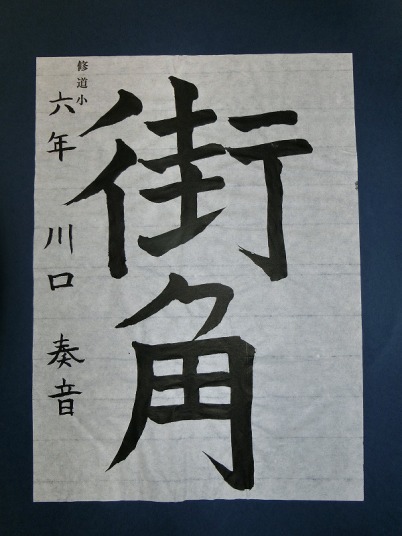 街角
修道小
六年 川口 奏音